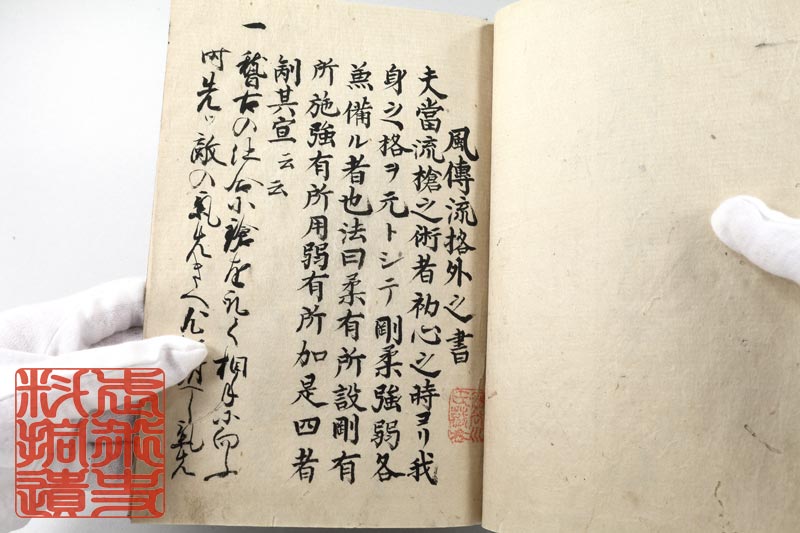 風傳流挌外之書
夫當流槍之術者初心之時ヨリ我
身之格ヲ元トシテ剛柔強弱各
兼備ル者也法曰柔有所設剛有
所施強有所用弱有所加是四者
制其宜云云
一 稽古の仕合に鎗を取て相手に向ふ
時先ツ敵の氣先き